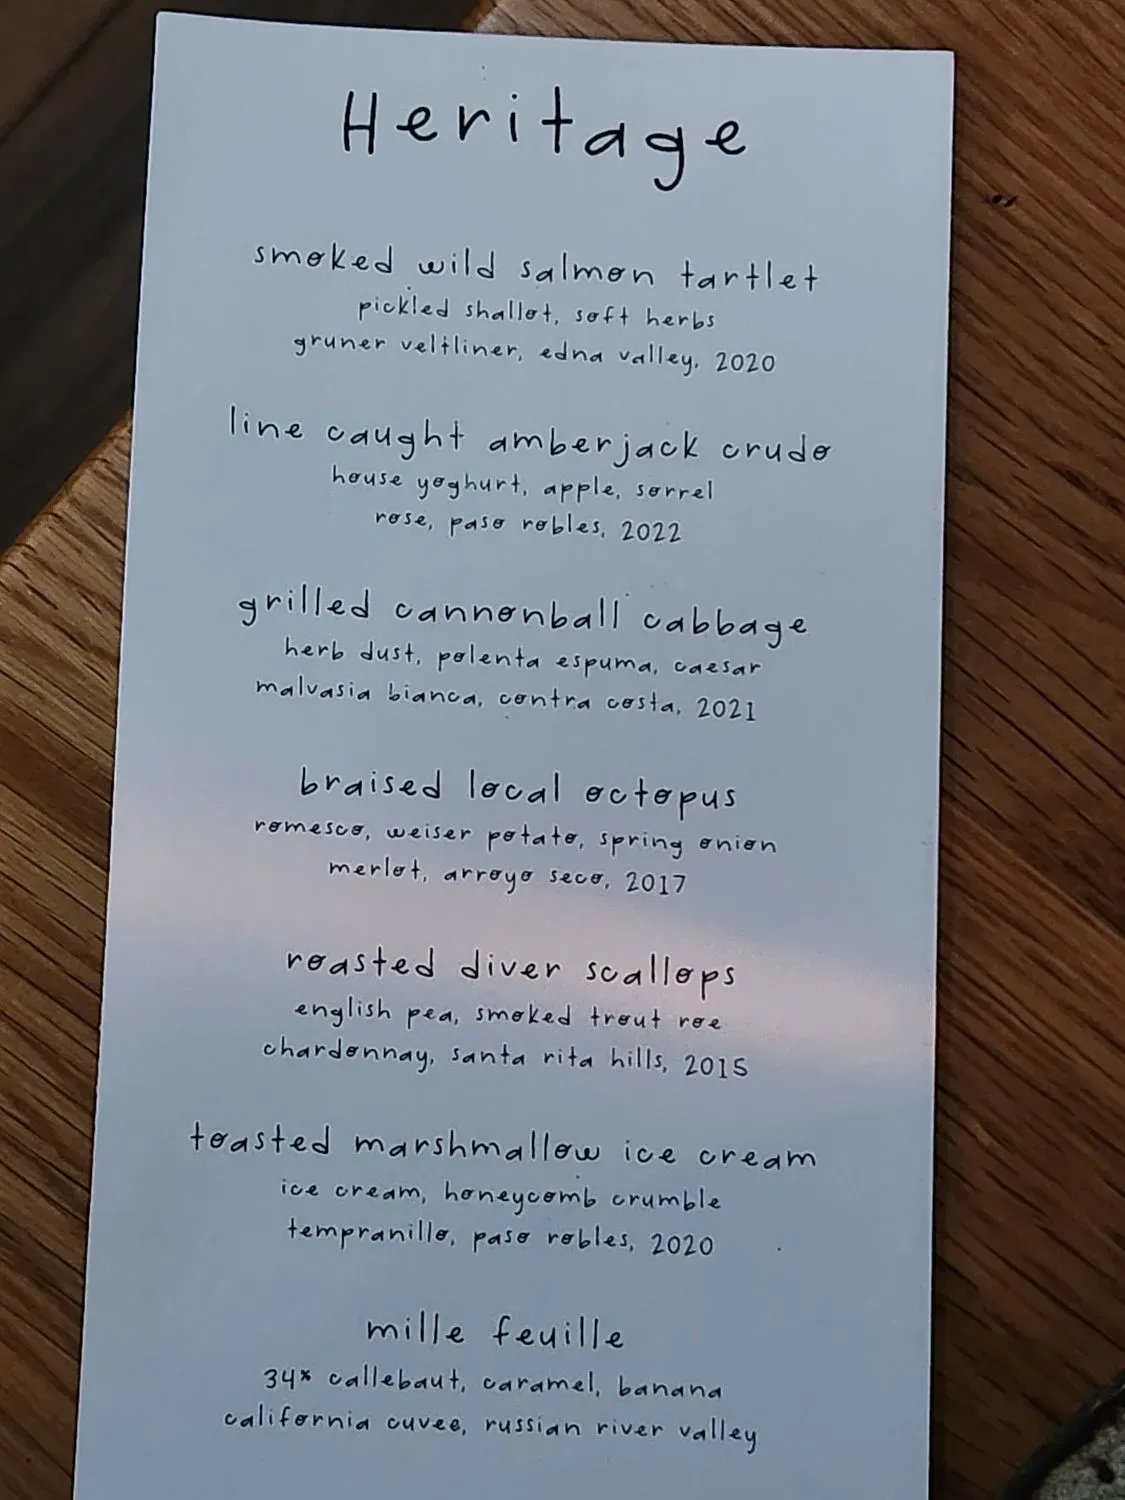 Heritage
smoked wild salmon tartlet
pickled shallot, soft herbs
gruner veltliner, edna valley, 2020
line caught amberjack crudo
house yoghurt, apple, sorrel
rose, paso robles, 2022
grilled cannonball cabbage
herb dust, polenta espuma, caesar
malvasia bianca, contra costa, 2021
braised local octopus
romesco, weiser potato, spring onion
merlot, arroyo seco, 2017
roasted diver scallops
english pea, smoked trout roe
chardonnay, santa rita hills, 2015
toasted marshmallow ice cream
ice cream, honeycomb crumble
tempranillo, paso robles, 2020
mille feuille
34% callebaut, caramel, banana
california cuvee, russian river valley